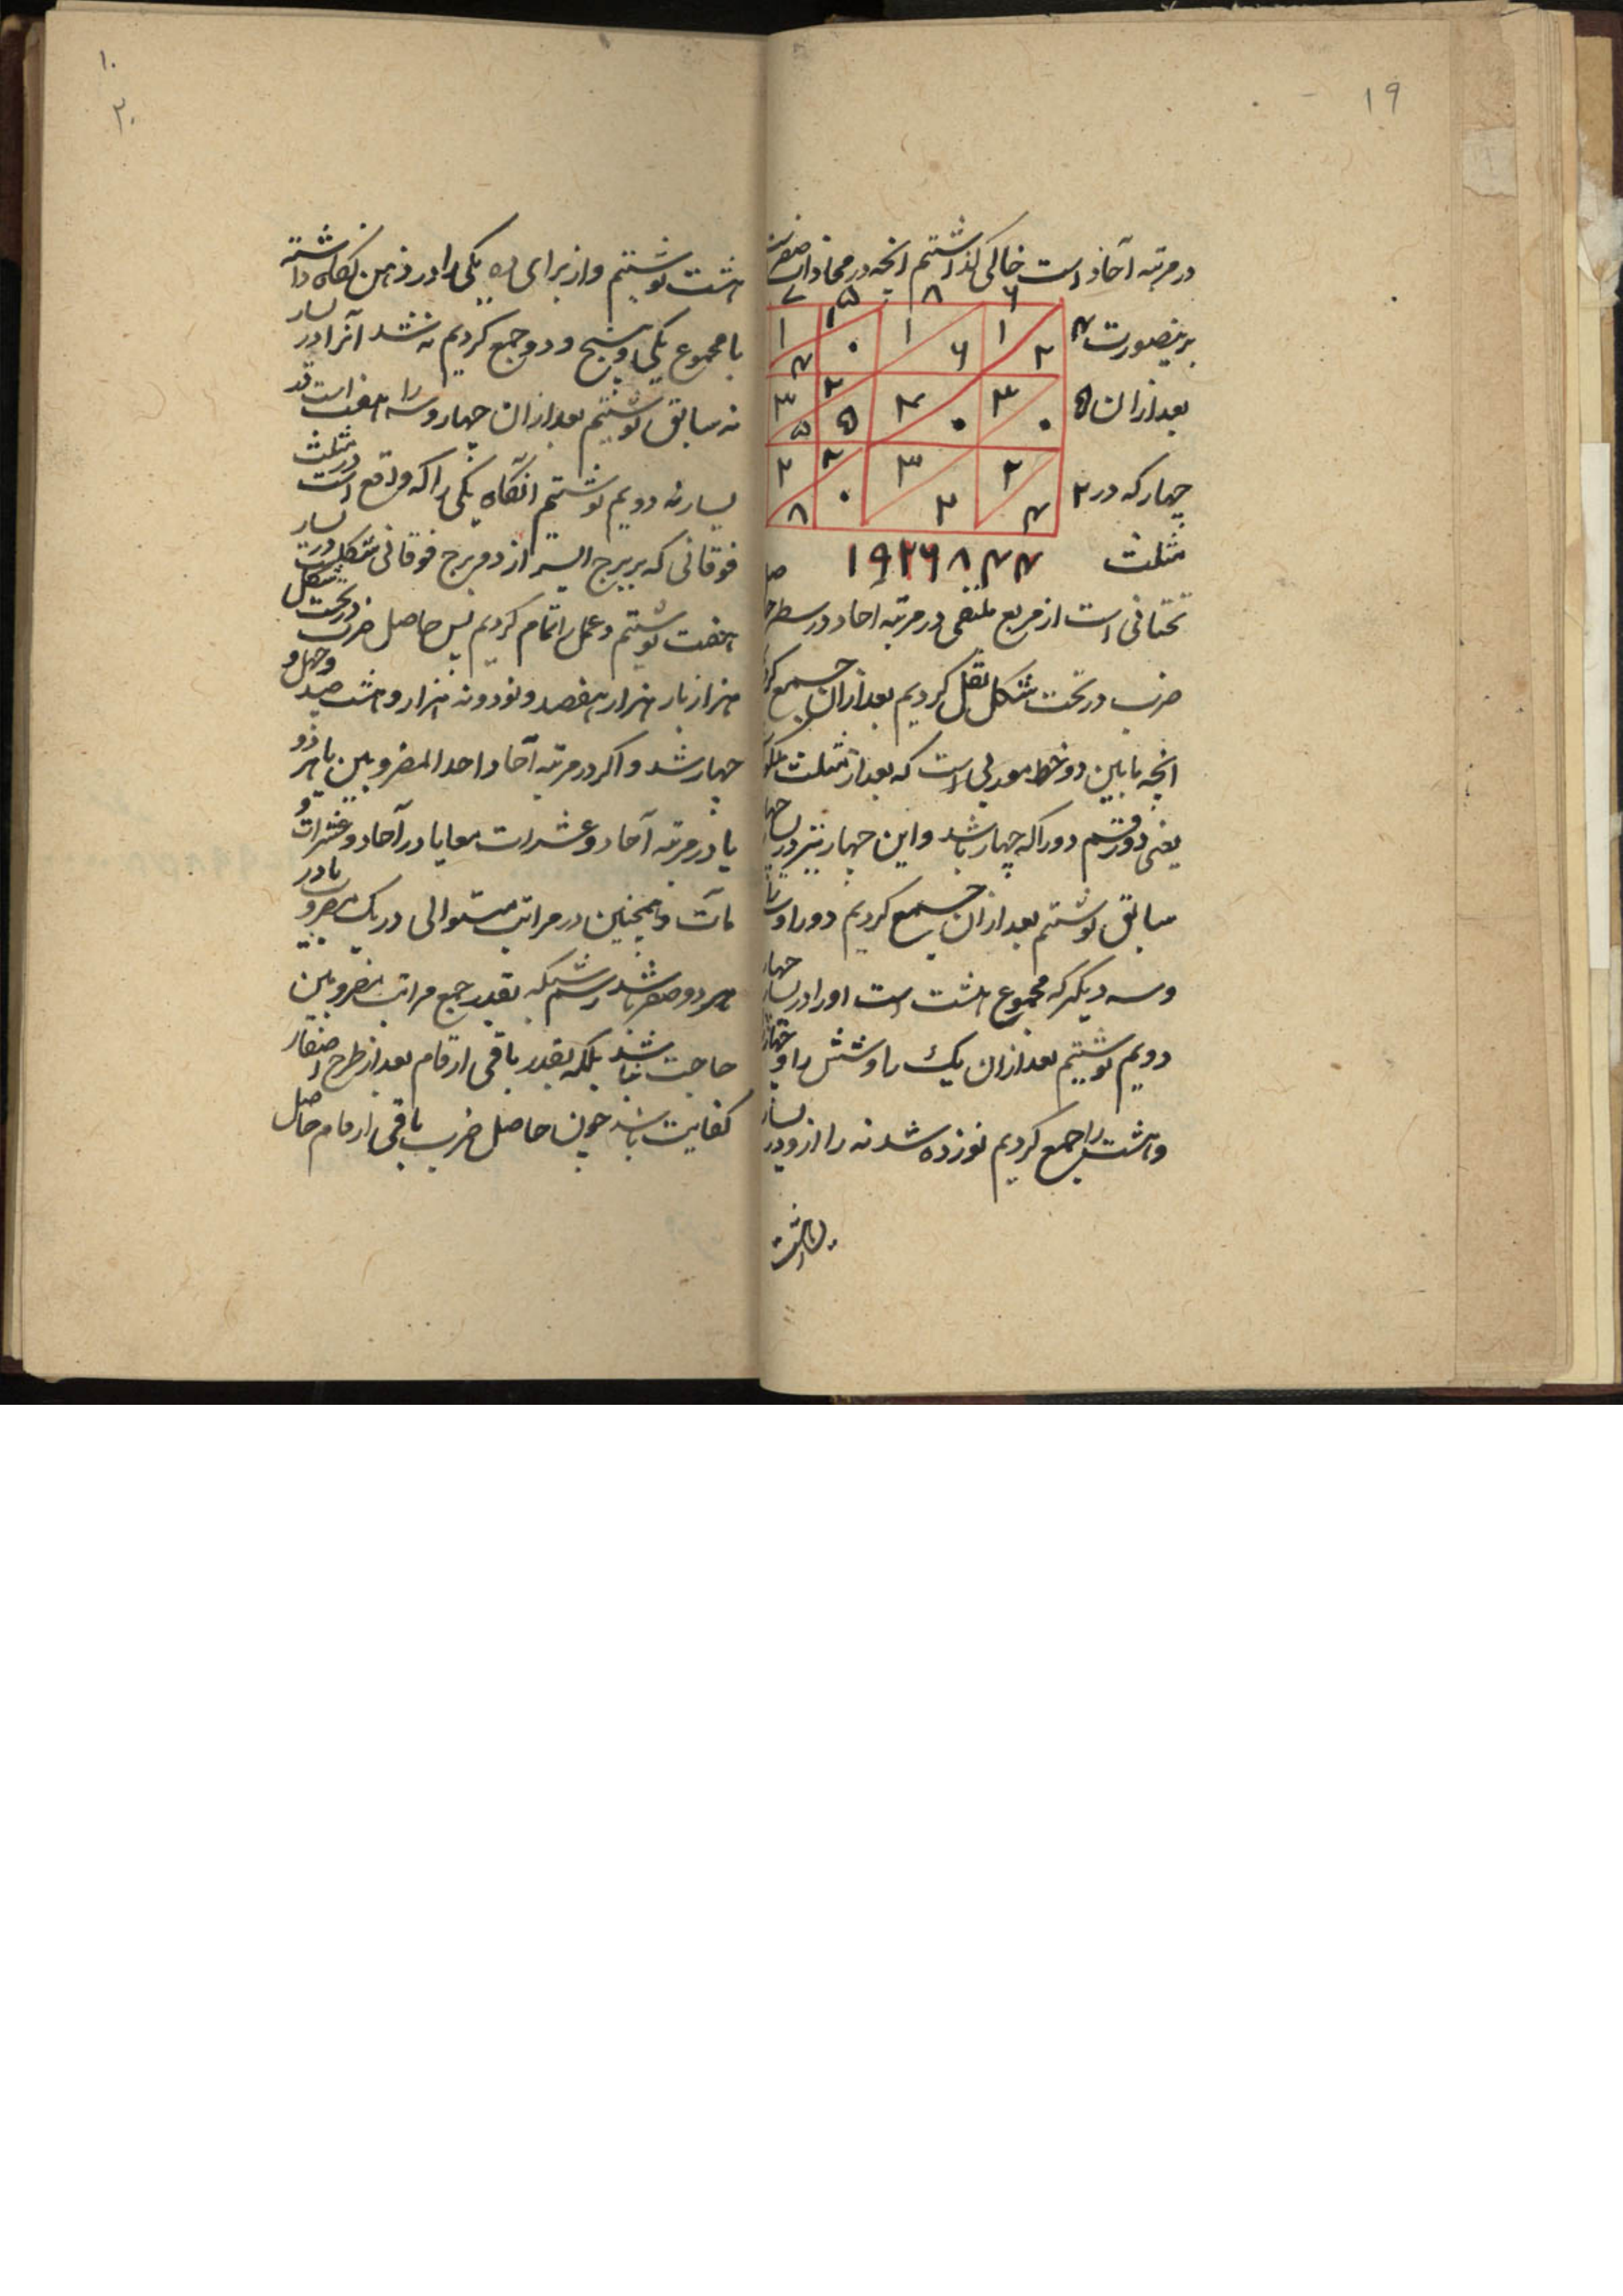 ۱۹
در مرتبه آحاد است خالی گذاشتیم انچه در محاذات
۷ ۵ ۸ ۶
برینصورت ۲
۱ ۴ ۰ ۱ ۶ ۱ ۲
بعد ازان ۵
۳ ۵ ۲ ۵ ۴ ۰ ۳ ۰
چهار که در ۴
۲ ۸ ۲ ۰ ۳ ۲ ۲ ۴
مثلث
تحتانی است از مربع ملتقی در مرتبه آحاد در سطر
ضرب در تحت شکل نقل کردیم بعد ازان جمع
انچه ما بین دو خط موربی است که بعد از مثلث
یعنی دو رقم دو را که چهار باشد و این چهار نیز در
سابق نوشتیم بعد ازان جمع کردیم دو را و
و سه دیگر که مجموع هشت است او را در یسار چهار
دویم نوشتیم بعد ازان یک را و شش را و چهار
و هشت را جمع کردیم نوزده شد نه را از و در یسار
۱۰
۲۰
هشت نوشتیم و از برای ده یکی را در ذهن نگاه داشته
با مجموع یکی و پنج و دو جمع کردیم نه شد آنرا در یسار
نه سابق نوشتیم بعد ازان چهار و سه را هفت است در
یسار نه دویم نوشتیم انگاه یکی را که واقع است در مثلث
فوقانی که بر برج ایسر از دو برج فوقانی شکل است در یسار
هفت نوشتیم و عمل را تمام کردیم پس حاصل ضرب در تحت شکل
هزار بار هزار هفصد و نود و نه هزار و هشت صد و چهل و
چهار شد و اگر در مرتبه آحاد احد المضروبین یا هر دو
یا در مرتبه آحاد و عشرات معا یا در آحاد و عشرات و
مآت و همچنین در مراتب متوالی در یک مضروب یا در
هر دو صفر باشد رسم شبکه بقدر جمع مراتب مضروبین
حاجت نباشد بلکه بقدر باقی ارقام بعد از طرح اصفار
کفایت باشد چون حاصل ضرب باقی ارقام حاصل